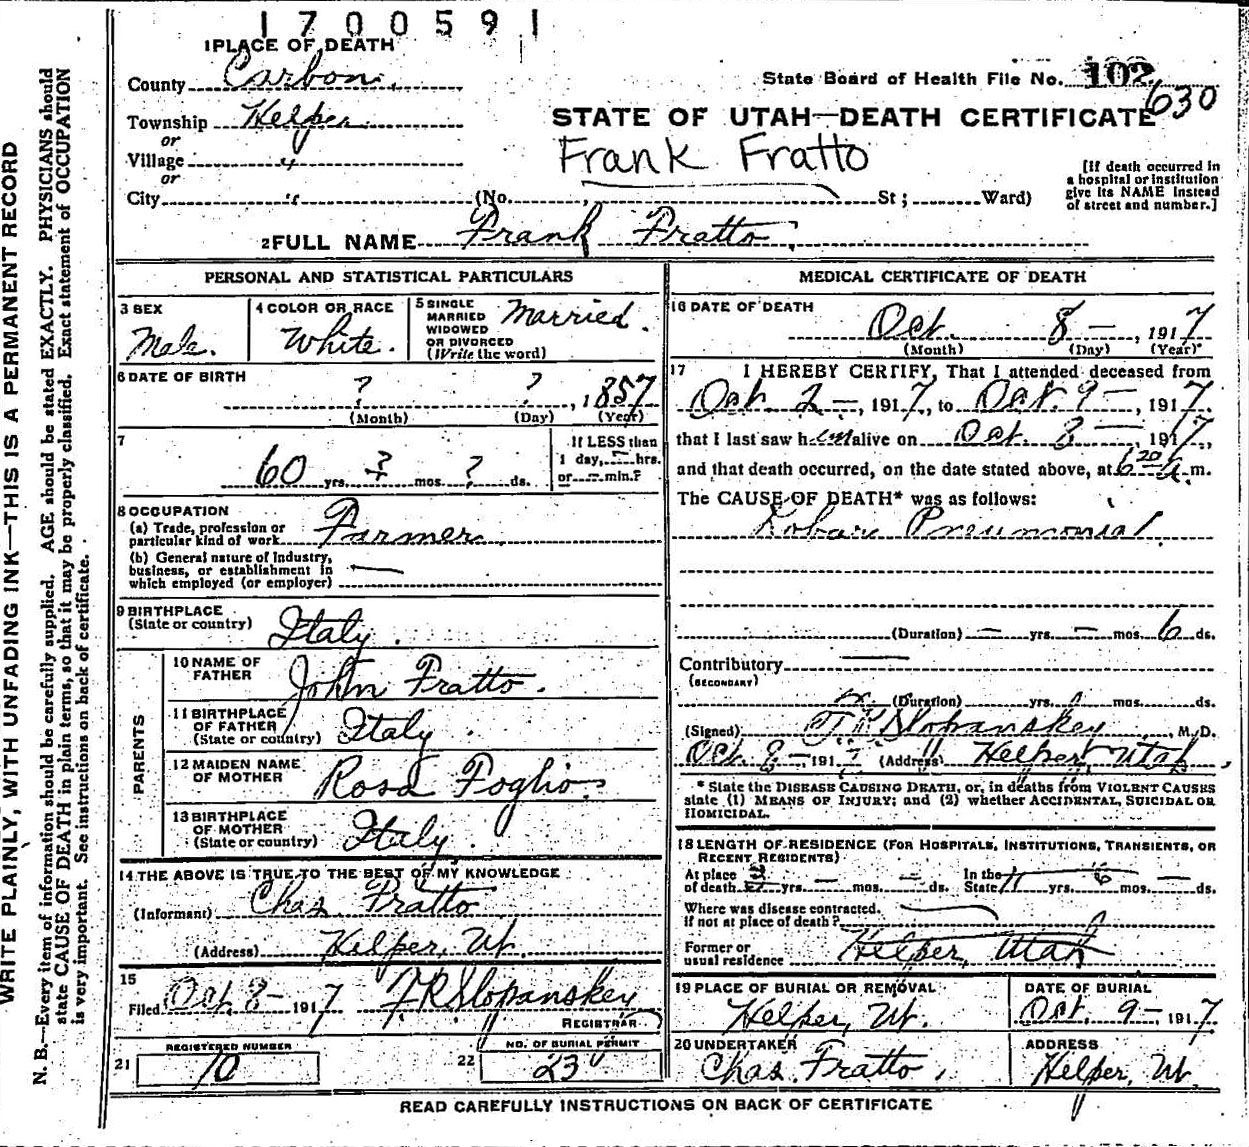 1700591
1 PLACE OF DEATH
County Carbon
State Board of Health File No. 102
630
Township Helper
or
Village "
or
City "
STATE OF UTAH—DEATH CERTIFICATE
Frank Fratto
(No. St; Ward)
[If death occurred in
a hospital or institution
give its NAME instead
of street and number.]
2 FULL NAME Frank Fratto
PERSONAL AND STATISTICAL PARTICULARS
3 SEX
Male.
4 COLOR OR RACE
White.
5 SINGLE
MARRIED
WIDOWED
OR DIVORCED
(Write the word)
Married.
6 DATE OF BIRTH
? ? , 1857
(Month) (Day) (Year)
7
60 yrs. ? mos. ? ds.
If LESS than
1 day, — hrs.
or — min.?
8 OCCUPATION
(a) Trade, profession or
particular kind of work Farmer
(b) General nature of industry,
business, or establishment in
which employed (or employer) —
9 BIRTHPLACE
(State or country) Italy.
PARENTS
10 NAME OF
FATHER John Fratto.
11 BIRTHPLACE
OF FATHER
(State or country) Italy.
12 MAIDEN NAME
OF MOTHER Rosa Foglio
13 BIRTHPLACE
OF MOTHER
(State or country) Italy.
14 THE ABOVE IS TRUE TO THE BEST OF MY KNOWLEDGE
(Informant) Chas Fratto
(Address) Helper, Ut.
15
Filed Oct. 8— 1917 F.R. Slopanskey
REGISTRAR
REGISTERED NUMBER
21 10
NO. OF BURIAL PERMIT
22 23
MEDICAL CERTIFICATE OF DEATH
16 DATE OF DEATH
Oct. 8 — , 1917
(Month) (Day) (Year)
17 I HEREBY CERTIFY, That I attended deceased from
Oct. 2 —, 1917, to Oct. 9 —, 1917,
that I last saw him alive on Oct. 8 — 1917,
and that death occurred, on the date stated above, at 6 20 a.m.
The CAUSE OF DEATH* was as follows:
Lobar Pneumonia
(Duration) — yrs. — mos. 6 ds.
Contributory —
(SECONDARY)
(Duration) yrs. mos. ds.
(Signed) F.R. Slopanskey, M.D.
Oct. 8 —, 1917 (Address) Helper, Utah,
* State the DISEASE CAUSING DEATH, or, in deaths from VIOLENT CAUSES
state (1) MEANS OF INJURY; and (2) whether ACCIDENTAL, SUICIDAL OR
HOMICIDAL.
18 LENGTH OF RESIDENCE (FOR HOSPITALS, INSTITUTIONS, TRANSIENTS, OR
RECENT RESIDENTS)
At place In the
of death yrs. — mos. — ds. State 11 yrs. 6 mos. — ds.
Where was disease contracted,
if not at place of death? —
Former or
usual residence Helper, Utah
19 PLACE OF BURIAL OR REMOVAL
Helper, Ut.
DATE OF BURIAL
Oct. 9 — 1917
20 UNDERTAKER
Chas. Fratto,
ADDRESS
Helper, Ut.
READ CAREFULLY INSTRUCTIONS ON BACK OF CERTIFICATE
WRITE PLAINLY, WITH UNFADING INK—THIS IS A PERMANENT RECORD
N. B.—Every item of information should be carefully supplied. AGE should be stated EXACTLY. PHYSICIANS should
state CAUSE OF DEATH in plain terms, so that it may be properly classified. Exact statement of OCCUPATION
is very important. See instructions on back of certificate.